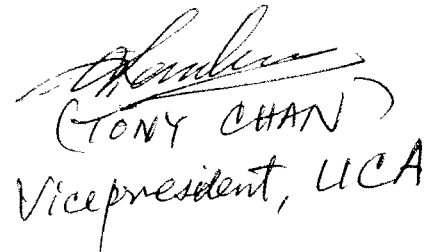 (TONY CHAN)
Vicepresident, UCA